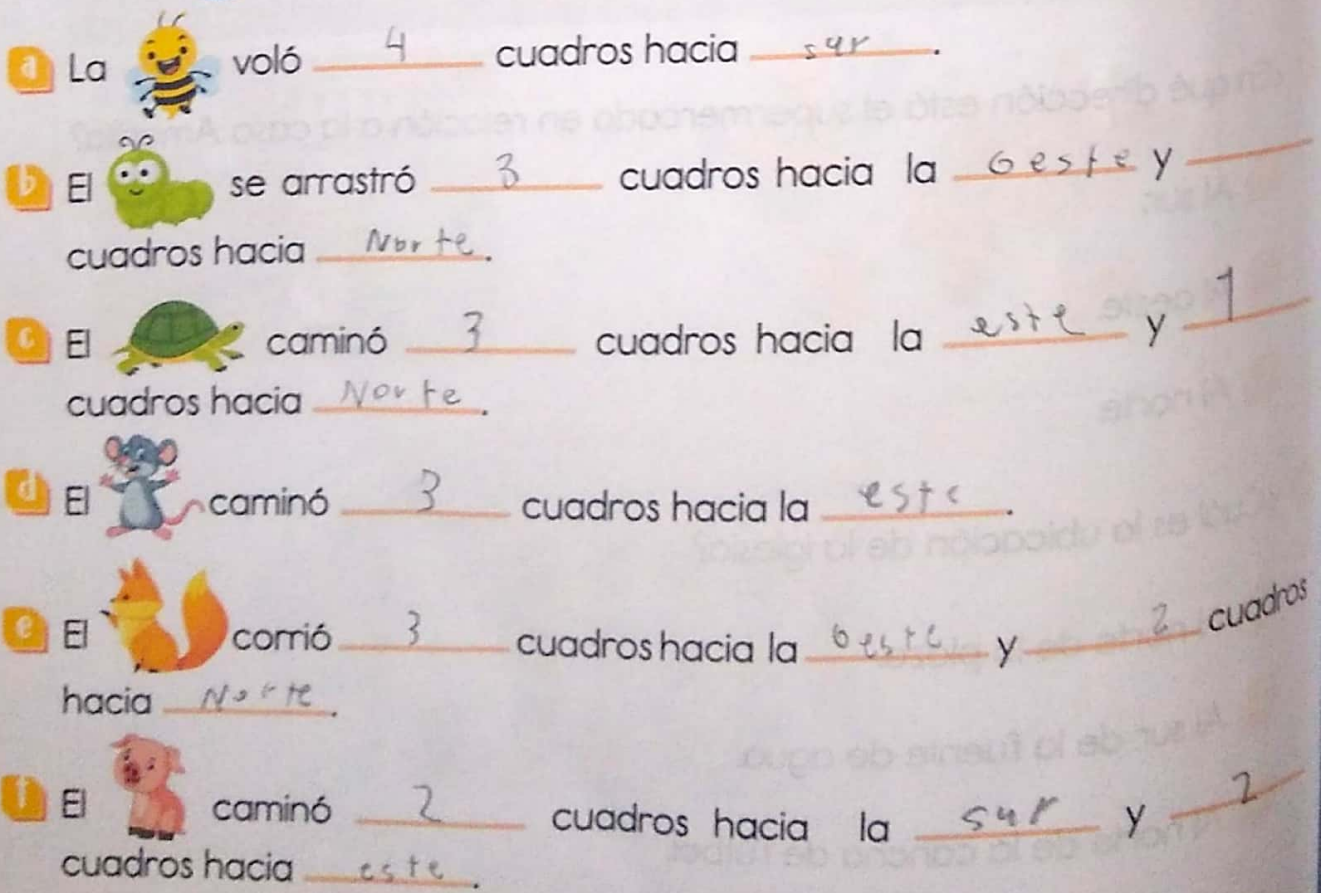 a La voló 4 cuadros hacia sur.
b El se arrastró 3 cuadros hacia la oeste y ____
cuadros hacia Norte.
c El caminó 3 cuadros hacia la este y 1
cuadros hacia Norte.
d El caminó 3 cuadros hacia la este.
e El corrió 3 cuadros hacia la oeste y 2 cuadros
hacia Norte.
f El caminó 2 cuadros hacia la sur y 2
cuadros hacia este.